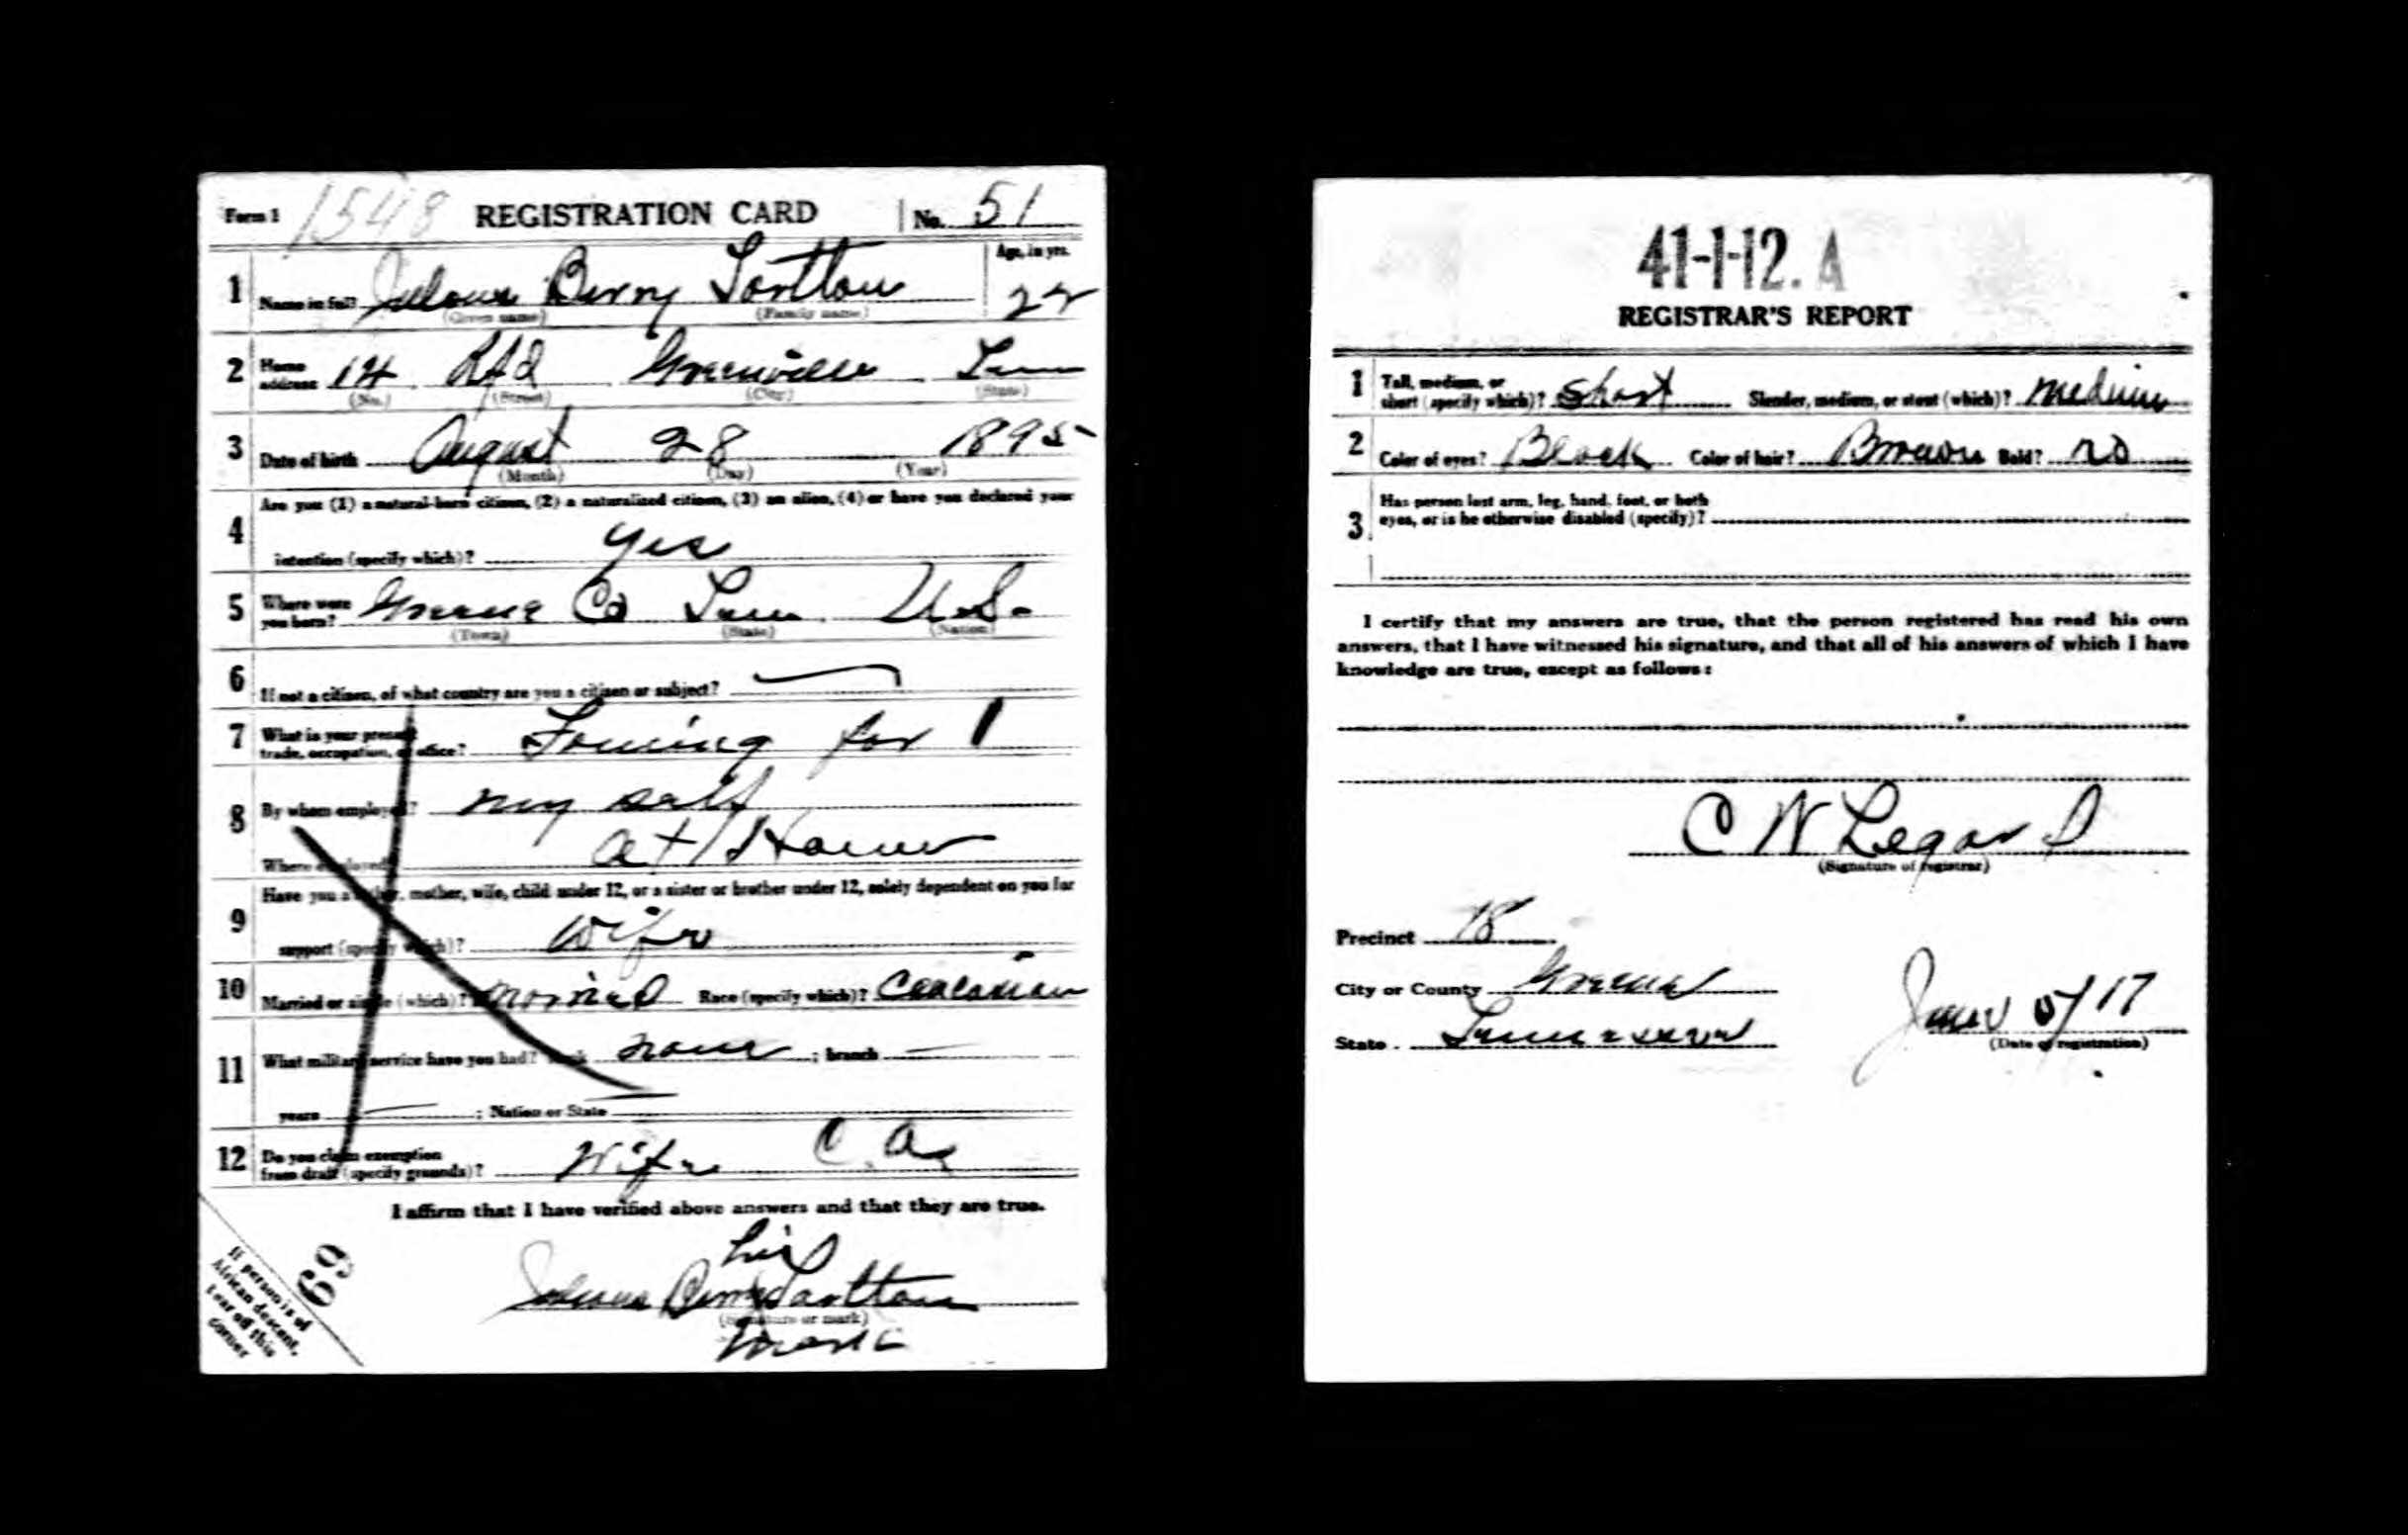 Form 1 1548 REGISTRATION CARD No. 51
1 Name in full Berry Tartton Age, in yrs. 22
(Given name) (Family name)
2 Home address 14 Rfd Greenville Tenn
(No.) (Street) (City) (State)
3 Date of birth August 28 1895
(Month) (Day) (Year)
4 Are you (1) a natural-born citizen, (2) a naturalized citizen, (3) an alien, (4) or have you declared your
intention (specify which)? yes
5 Where were you born? Greene Co Tenn U.S.
(Town) (State) (Nation)
6 If not a citizen, of what country are you a citizen or subject? —
7 What is your present trade, occupation, or office? Farming for 1
8 By whom employed? my self
Where employed? at Home
9 Have you a father, mother, wife, child under 12, or a sister or brother under 12, solely dependent on you for
support (specify which)? Wife
10 Married or single (which)? married Race (specify which)? Caucasian
11 What military service have you had? Rank none ; branch —
years — ; Nation or State —
12 Do you claim exemption from draft (specify grounds)? Wife C.A.
I affirm that I have verified above answers and that they are true.
his
Berry Tartton
(Signature or mark)
mark
If person is of
African descent,
tear off this
corner
69
41-1-12. A
REGISTRAR'S REPORT
1 Tall, medium, or short (specify which)? Short Slender, medium, or stout (which)? medium
2 Color of eyes? Black Color of hair? Brown Bald? no
3 Has person lost arm, leg, hand, foot, or both
eyes, or is he otherwise disabled (specify)?
I certify that my answers are true, that the person registered has read his own
answers, that I have witnessed his signature, and that all of his answers of which I have
knowledge are true, except as follows:
C W Legard
(Signature of registrar)
Precinct 18
City or County Greene
State Tennessee June 5/17
(Date of registration)